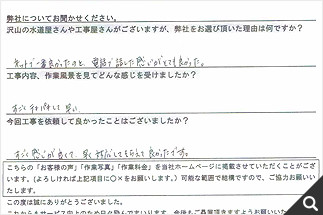 弊社についてお聞かせください。
沢山の水道屋さんや工事屋さんがございますが、弊社をお選び頂いた理由は何ですか?
ネットで一番良かったのと、電話で話した感じがとても良かった。
工事内容、作業風景を見てどんな感じを受けましたか?
すごくテキパキして早い
今回工事を依頼して良かったことはございましたか?
すごく感じが良くて、早く対応してもらえて良かったです。
こちらの「お客様の声」「作業写真」「作業料金」を当社ホームページに掲載させていただくことがござい
ます。(よろしければ上記項目に○をお願いします。)可能な範囲で結構ですので、ご協力お願いい
たします。
この度は誠にありがとうございました。